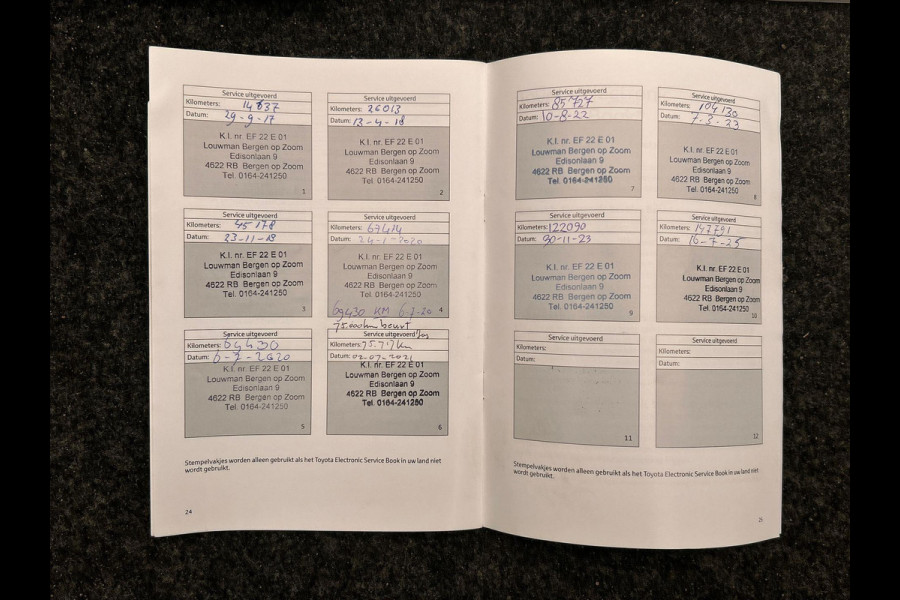 Service uitgevoerd
Kilometers: 14637
Datum: 29-9-17
K.I. nr. EF 22 E 01
Louwman Bergen op Zoom
Edisonlaan 9
4622 RB Bergen op Zoom
Tel. 0164-241250
1
Service uitgevoerd
Kilometers: 26013
Datum: 13-4-18
K.I. nr. EF 22 E 01
Louwman Bergen op Zoom
Edisonlaan 9
4622 RB Bergen op Zoom
Tel. 0164-241250
2
Service uitgevoerd
Kilometers: 45178
Datum: 23-11-18
K.I. nr. EF 22 E 01
Louwman Bergen op Zoom
Edisonlaan 9
4622 RB Bergen op Zoom
Tel. 0164-241250
3
Service uitgevoerd
Kilometers: 67414
Datum: 24-1-2020
K.I. nr. EF 22 E 01
Louwman Bergen op Zoom
Edisonlaan 9
4622 RB Bergen op Zoom
Tel. 0164-241250
69430 KM 6-7-20
4
Service uitgevoerd
Kilometers: 69430
Datum: 6-7-2020
K.I. nr. EF 22 E 01
Louwman Bergen op Zoom
Edisonlaan 9
4622 RB Bergen op Zoom
Tel. 0164-241250
5
75.000km beurt
Service uitgevoerd
Kilometers: 75.717km
Datum: 02-07-2021
K.I. nr. EF 22 E 01
Louwman Bergen op Zoom
Edisonlaan 9
4622 RB Bergen op Zoom
Tel. 0164-241250
6
Stempelvakjes worden alleen gebruikt als het Toyota Electronic Service Book in uw land niet
wordt gebruikt.
24
Service uitgevoerd
Kilometers: 85727
Datum: 10-8-22
K.I. nr. EF 22 E 01
Louwman Bergen op Zoom
Edisonlaan 9
4622 RB Bergen op Zoom
Tel. 0164-241250
7
Service uitgevoerd
Kilometers: 104130
Datum: 7-3-23
K.I. nr. EF 22 E 01
Louwman Bergen op Zoom
Edisonlaan 9
4622 RB Bergen op Zoom
Tel. 0164-241250
8
Service uitgevoerd
Kilometers: 122090
Datum: 30-11-23
K.I. nr. EF 22 E 01
Louwman Bergen op Zoom
Edisonlaan 9
4622 RB Bergen op Zoom
Tel. 0164-241250
9
Service uitgevoerd
Kilometers: 147791
Datum: 16-7-25
K.I. nr. EF 22 E 01
Louwman Bergen op Zoom
Edisonlaan 9
4622 RB Bergen op Zoom
Tel. 0164-241250
10
Service uitgevoerd
Kilometers:
Datum:
11
Service uitgevoerd
Kilometers:
Datum:
12
Stempelvakjes worden alleen gebruikt als het Toyota Electronic Service Book in uw land niet
wordt gebruikt.
25